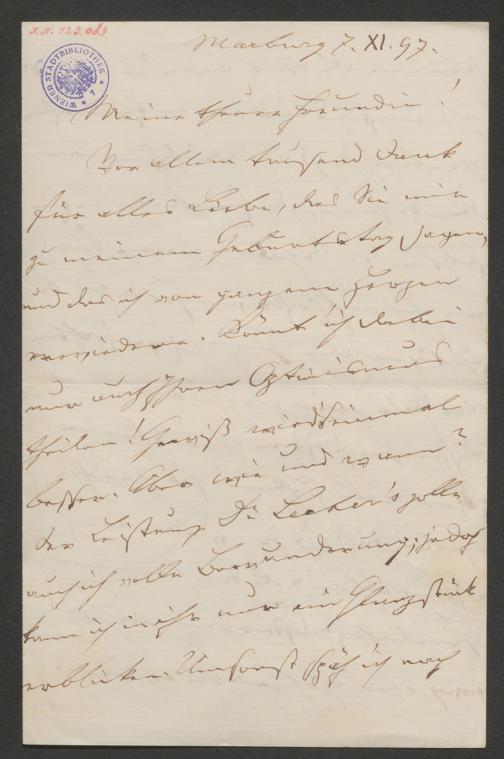 I.N. 123.083
WIENER STADTBIBLIOTHEK
Marburg 7. XI. 97.
Meine theure Freundin!
Vor allem tausend Dank
für alles Liebe, das Sie mir
zu meinem Geburtstag sagen,
und das ich von ganzem Herzen
erwiedere. Könnt' ich dabei
nur auch Ihren Optimismus
theilen! Gewiß wird's einmal
besser. Aber wie und wann?
Der Leistung Dr. Lecher's zolle
auch ich volle Bewunderung; jedoch
kann ich in ihr nur ein Glanzstück
erblicken. Umsonst späh' ich nach